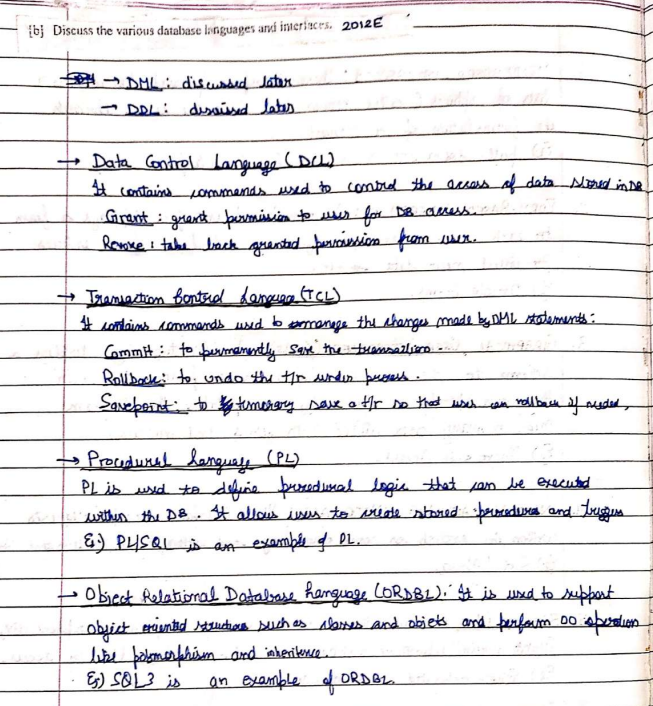 [b] Discuss the various database languages and interfaces. 2012E
→ DML : discussed later
→ DDL : discussed later
→ Data Control Language (DCL)
It contains commands used to control the access of data stored in DB
Grant : grant permission to user for DB access.
Revoke : take back granted permission from user.
→ Transaction Control Language (TCL)
It contains commands used to manage the changes made by DML statements :
Commit : to permanently save the transaction.
Rollback : to undo the t/r under process.
Savepoint : to temperary save a t/r so that user can rollback if needed,
→ Procedural Language (PL)
PL is used to define procedural logic that can be executed
within the DB. It allows users to create stored procedures and triggers
Eg) PL/SQL is an example of PL.
→ Object Relational Database Language (ORDBL). It is used to support
object oriented structure such as classes and objects and perform OO operation
like polymorphism and inheritence.
Eg) SQL3 is an example of ORDBL.